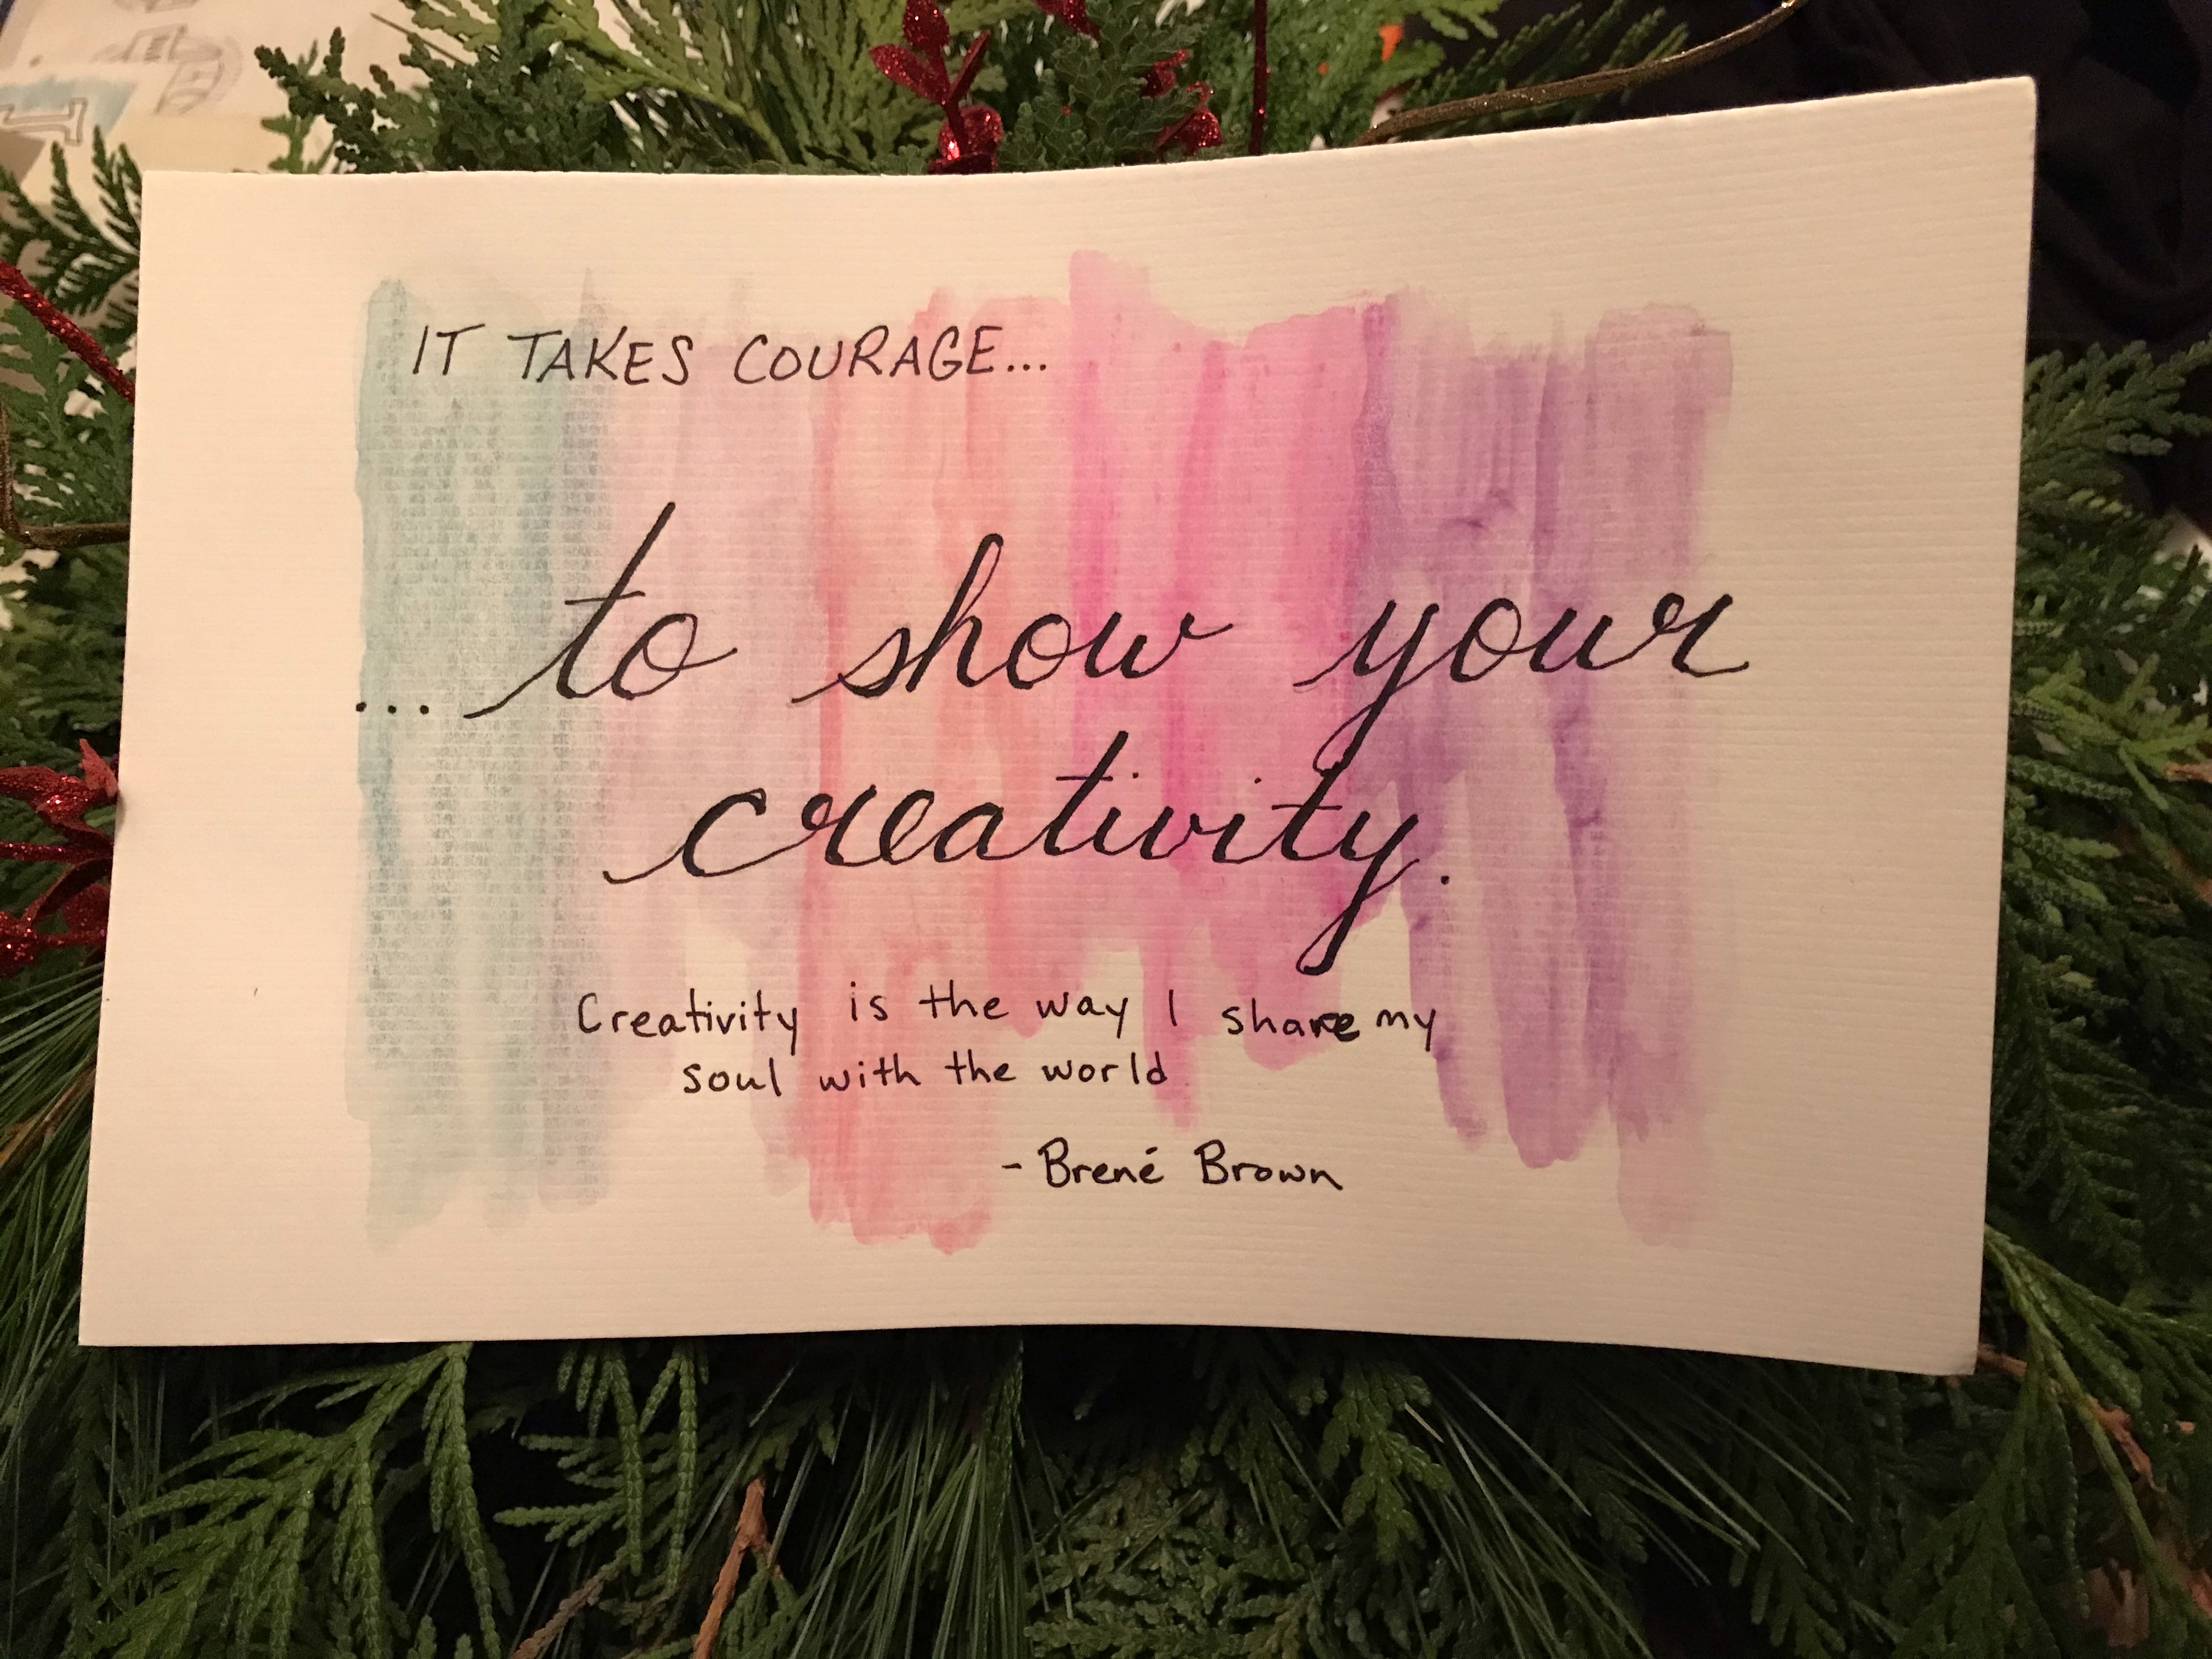 IT TAKES COURAGE...
... to show your
creativity.
Creativity is the way I share my
soul with the world
- Brené Brown